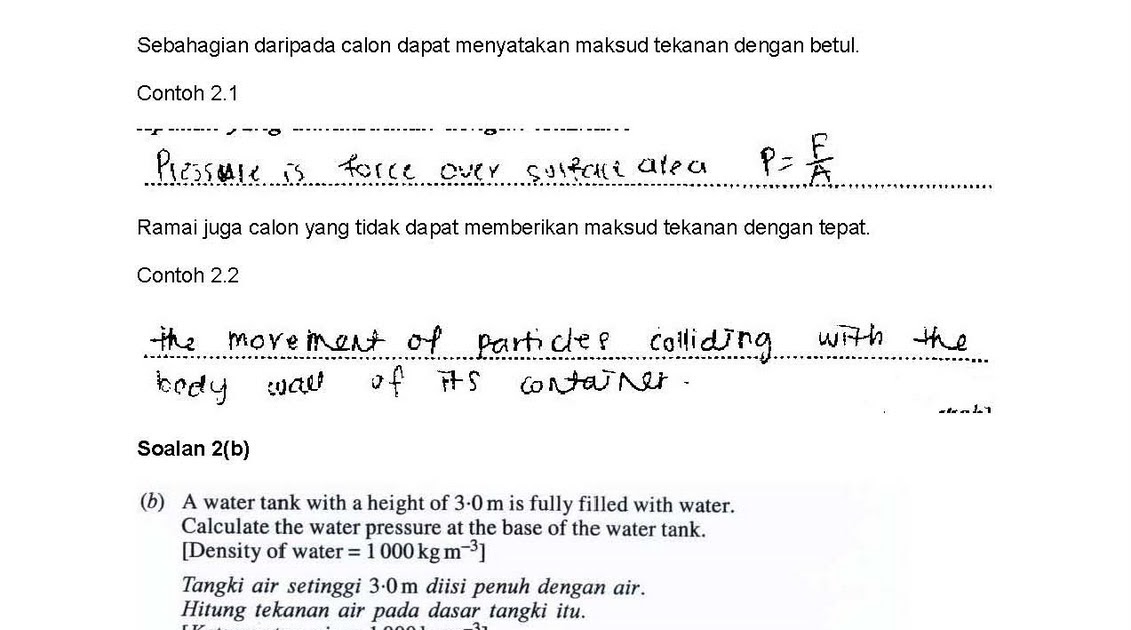 Sebahagian daripada calon dapat menyatakan maksud tekanan dengan betul.
Contoh 2.1
Pressure is force over surface area P = F/A
Ramai juga calon yang tidak dapat memberikan maksud tekanan dengan tepat.
Contoh 2.2
the movement of particles colliding with the
body wall of its container.
Soalan 2(b)
(b) A water tank with a height of 3·0 m is fully filled with water.
Calculate the water pressure at the base of the water tank.
[Density of water = 1 000 kg m⁻³]
Tangki air setinggi 3·0 m diisi penuh dengan air.
Hitung tekanan air pada dasar tangki itu.